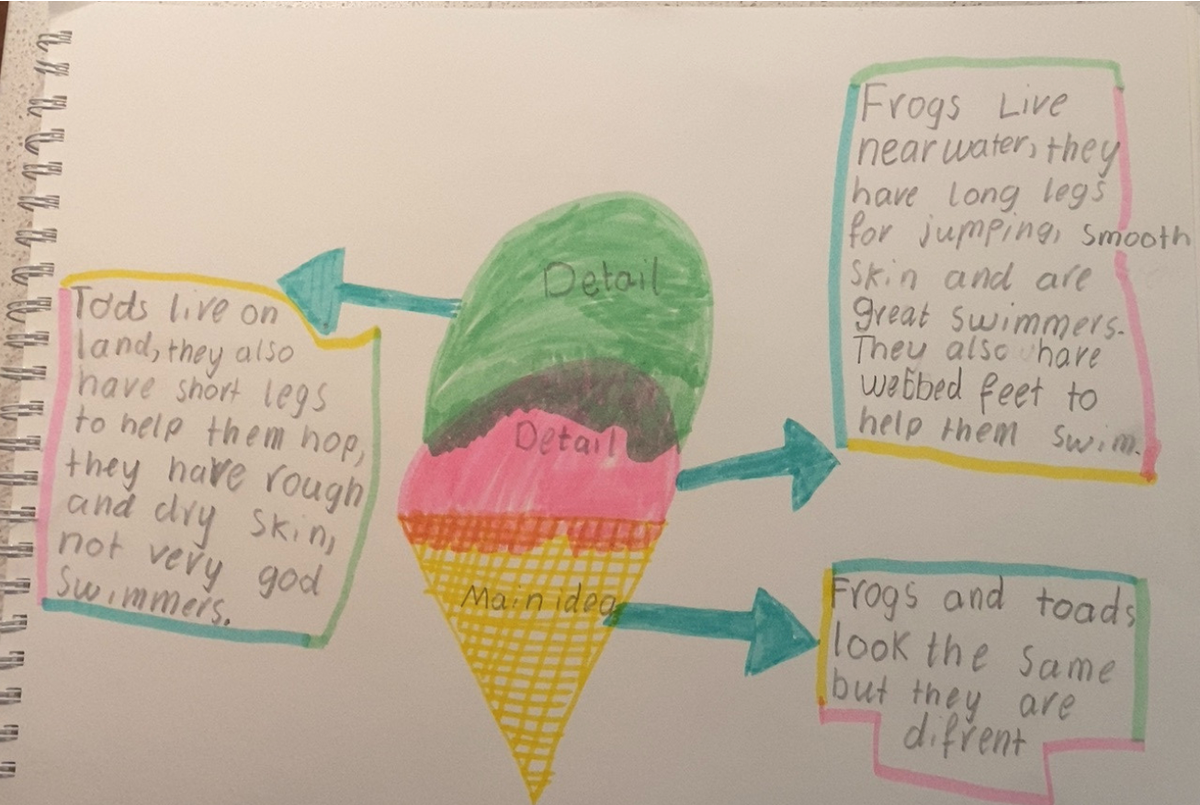 Detail
Detail
Main idea
Tods live on
land, they also
have short legs
to help them hop,
they have rough
and dry skin,
not very god
swimmers.
Frogs Live
near water, they
have long legs
for jumping, smooth
skin and are
great swimmers.
They also have
webbed feet to
help them swim.
Frogs and toads
look the same
but they are
difrent